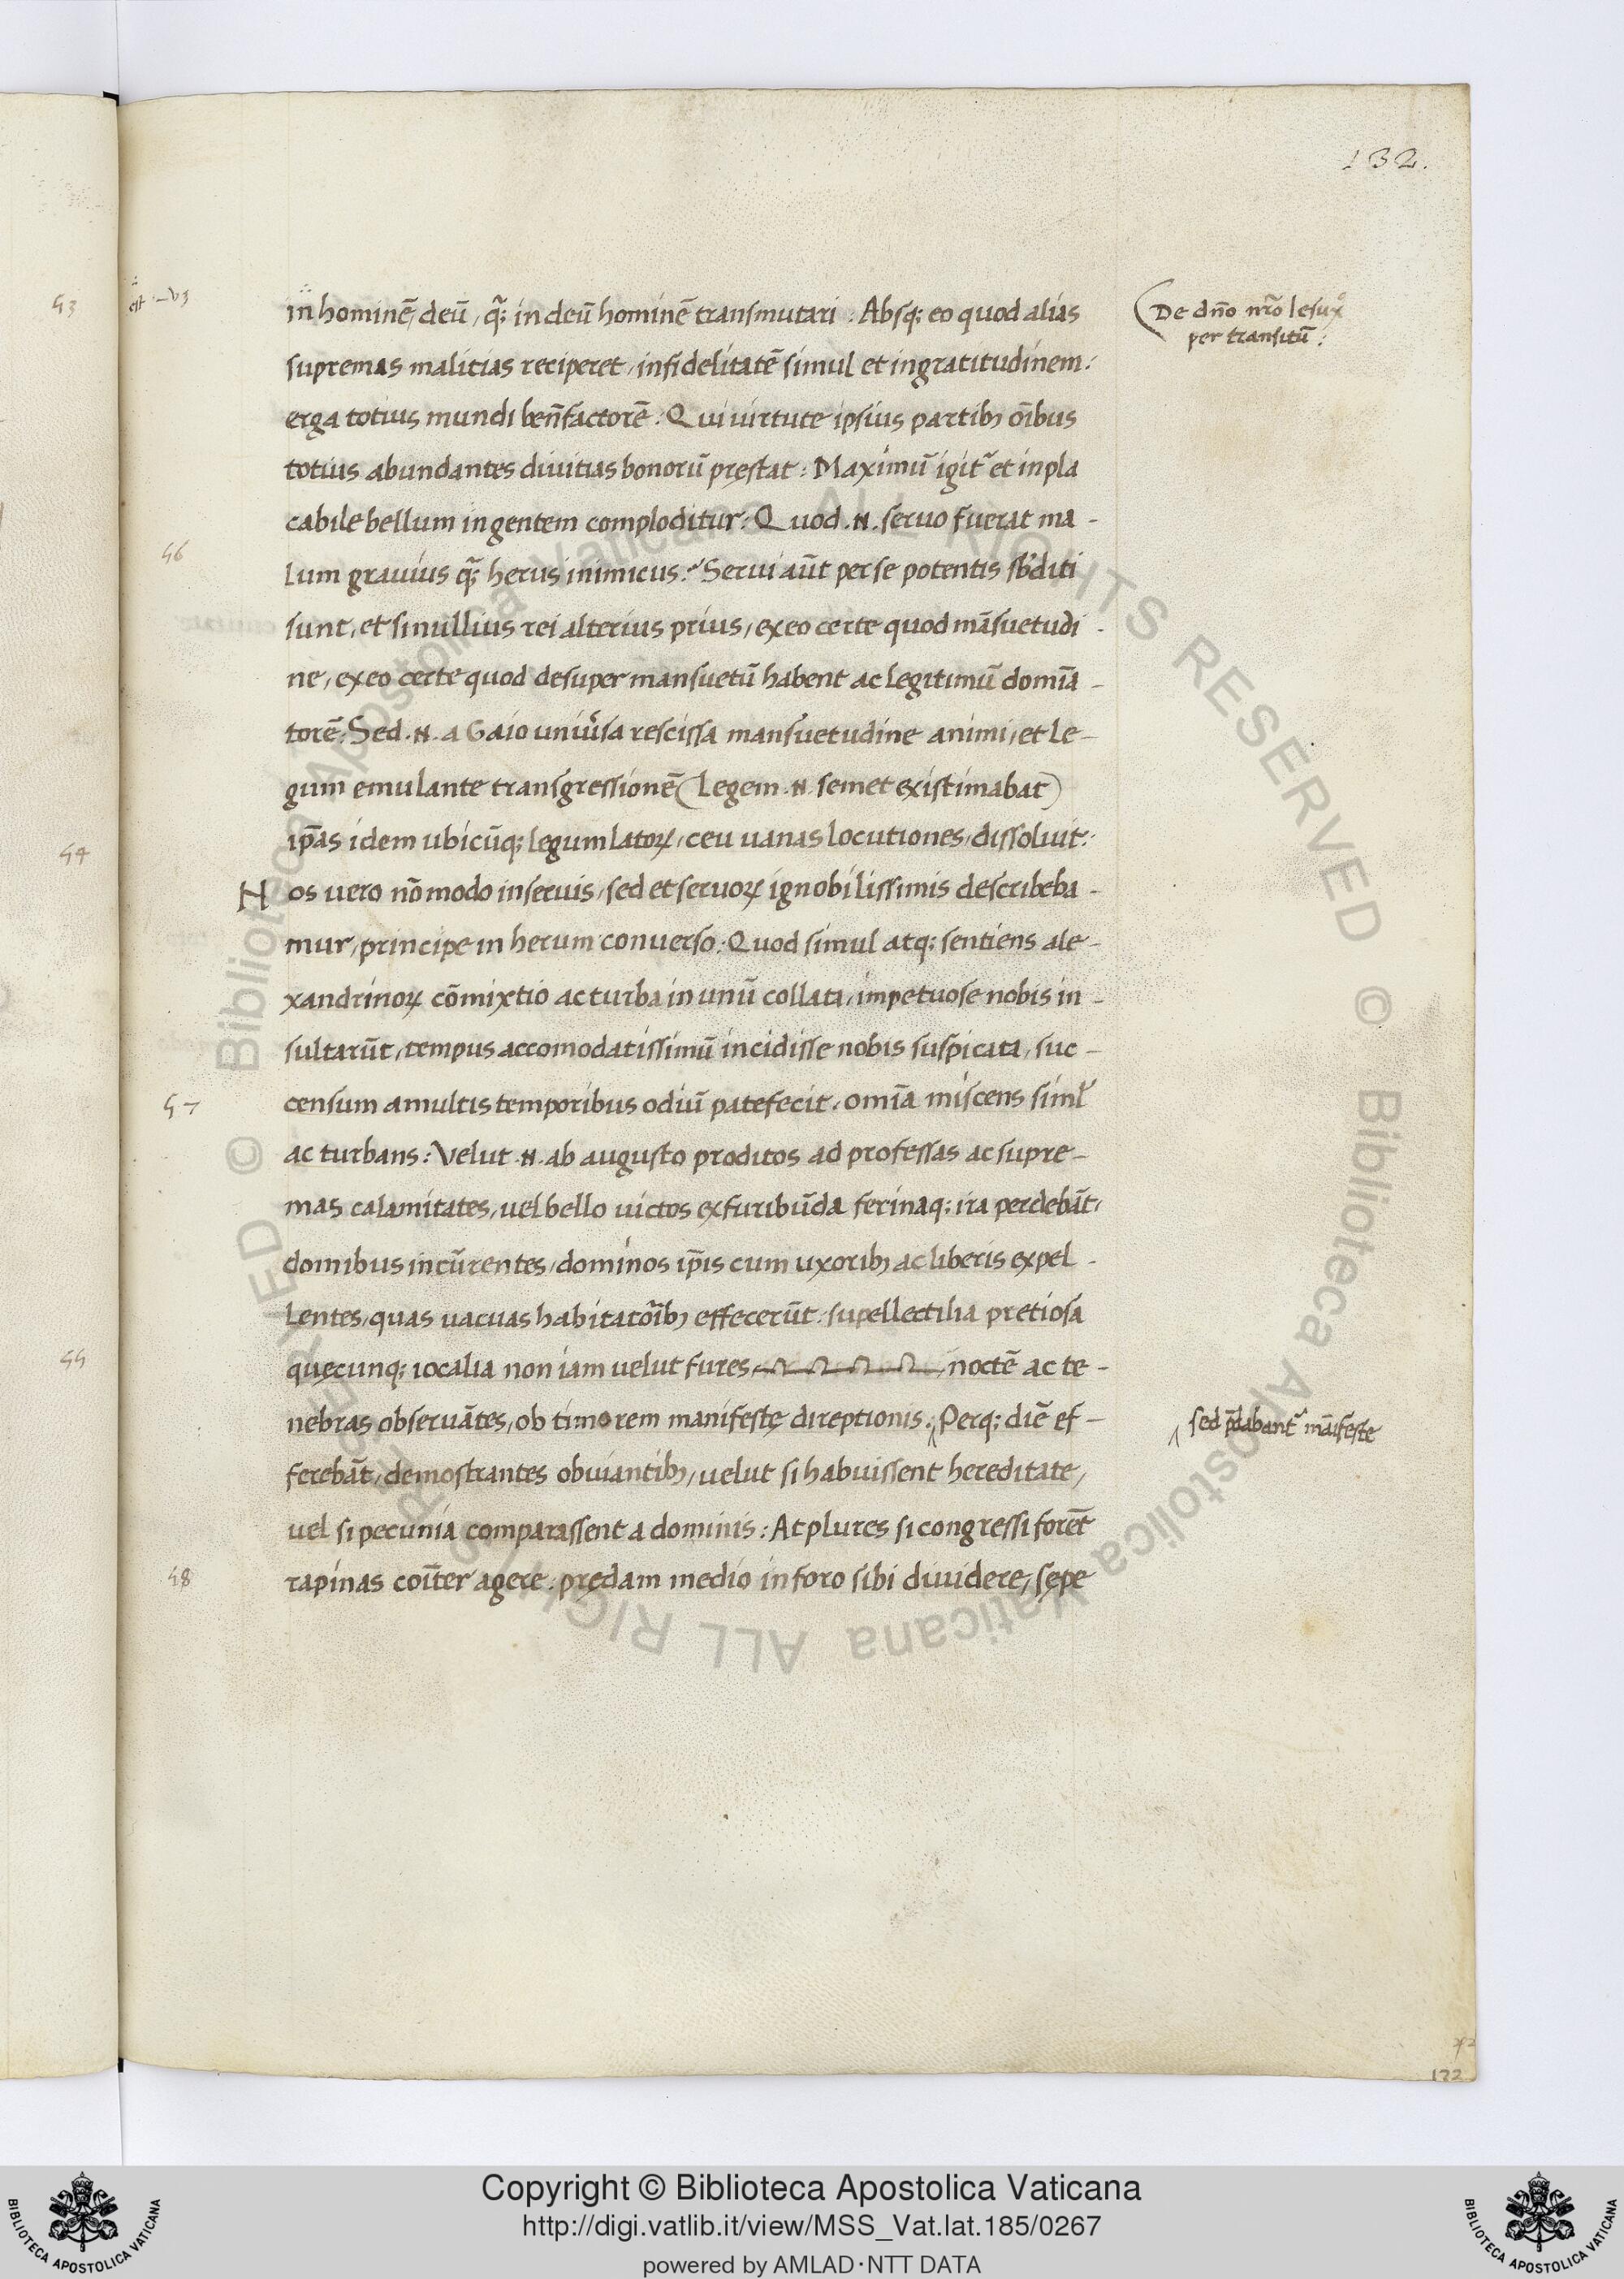 132.
in hominē, deū, q̃; in deū hominē transmutari. Absq; eo quod alias
De dn̄o nr̄o Iesu xº
per transitū:
supremas malitias reciperet, infidelitatē simul et ingratitudinem:
erga totius mundi ben̄factorē: Qui uirtute ipsius partibꝫ oībus
totius abundantes diuitias bonorū pręstat: Maximū igit᷑ et inpla
cabile bellum ingentem comploditur: Quod .N. seruo fuerat ma-
56
lum grauius q̃; herus inimicus: Serui aūt per se potentis sb̓diti
sunt, et si nullius rei alterius prius, ex eo certe quod māsuetudi-
ne, ex eo certe quod desuper mansuetū habent ac legitimū domīa-
torē: Sed .N. a Gaio uniu̓sa rescissa mansuetudine animi, et le-
gum emulante transgressionē (Legem .N. semet existimabat)
54
ip̄as idem ubicūq; legumlatoꝝ, ceu uanas locutiones, dissoluit:
Nos uero nō modo in seruis, sed et seruoꝝ ignobilissimis describeba-
mur, principe in herum conuerso: Quod simul atq; sentiens ale-
xandrinoꝝ cōmixtio ac turba in unū collata, impetuose nobis in-
sultarūt, tempus accomodatissimū incidisse nobis suspicata, suc-
57
censum a multis temporibus odiū patefecit, omīa miscens siml̓
ac turbans: Velut .N. ab augusto proditos ad professas ac supre-
mas calamitates, uel bello uictos ex furibūda ferinaq; ira perdebāt,
domibus incūrentes, dominos ip̄is cum uxoribꝫ ac liberis expel-
lentes, quas uacuas habitatoībꝫ effecerūt: supellectilia pretiosa
55
quęcunq; iocalia non iam uelut fures noctē ac te-
nebras obseruātes, ob timorem manifestę direptionis: Perq; diē ef-
sed p̄dabant᷑ māifeste
ferebāt, demostrantes obuiantibꝫ, uelut si habuissent hereditate,
uel si pecunia comparassent a dominis: At plures si congressi forēt
58
rapinas coīter agere: prędam medio in foro sibi diuidere, sępe
132
Copyright © Biblioteca Apostolica Vaticana
http://digi.vatlib.it/view/MSS_Vat.lat.185/0267
powered by AMLAD·NTT DATA
BIBLIOTECA APOSTOLICA VATICANA
BIBLIOTECA APOSTOLICA VATICANA
© Biblioteca Apostolica Vaticana ALL RIGHTS RESERVED
© Biblioteca Apostolica Vaticana ALL RIGHTS RESERVED